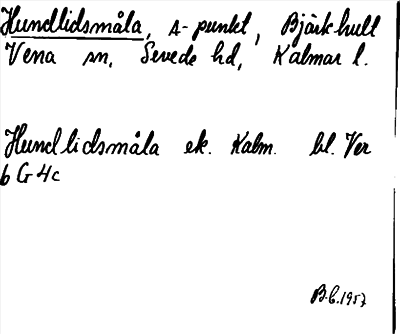 Hundlidsmåla, s-punkt, Bjärkhult
Vena sn, Sevede hd, Kalmar l.
Hundlidsmåla ek. Kalm. bl. Ver
b G 4c
B.L. 1957